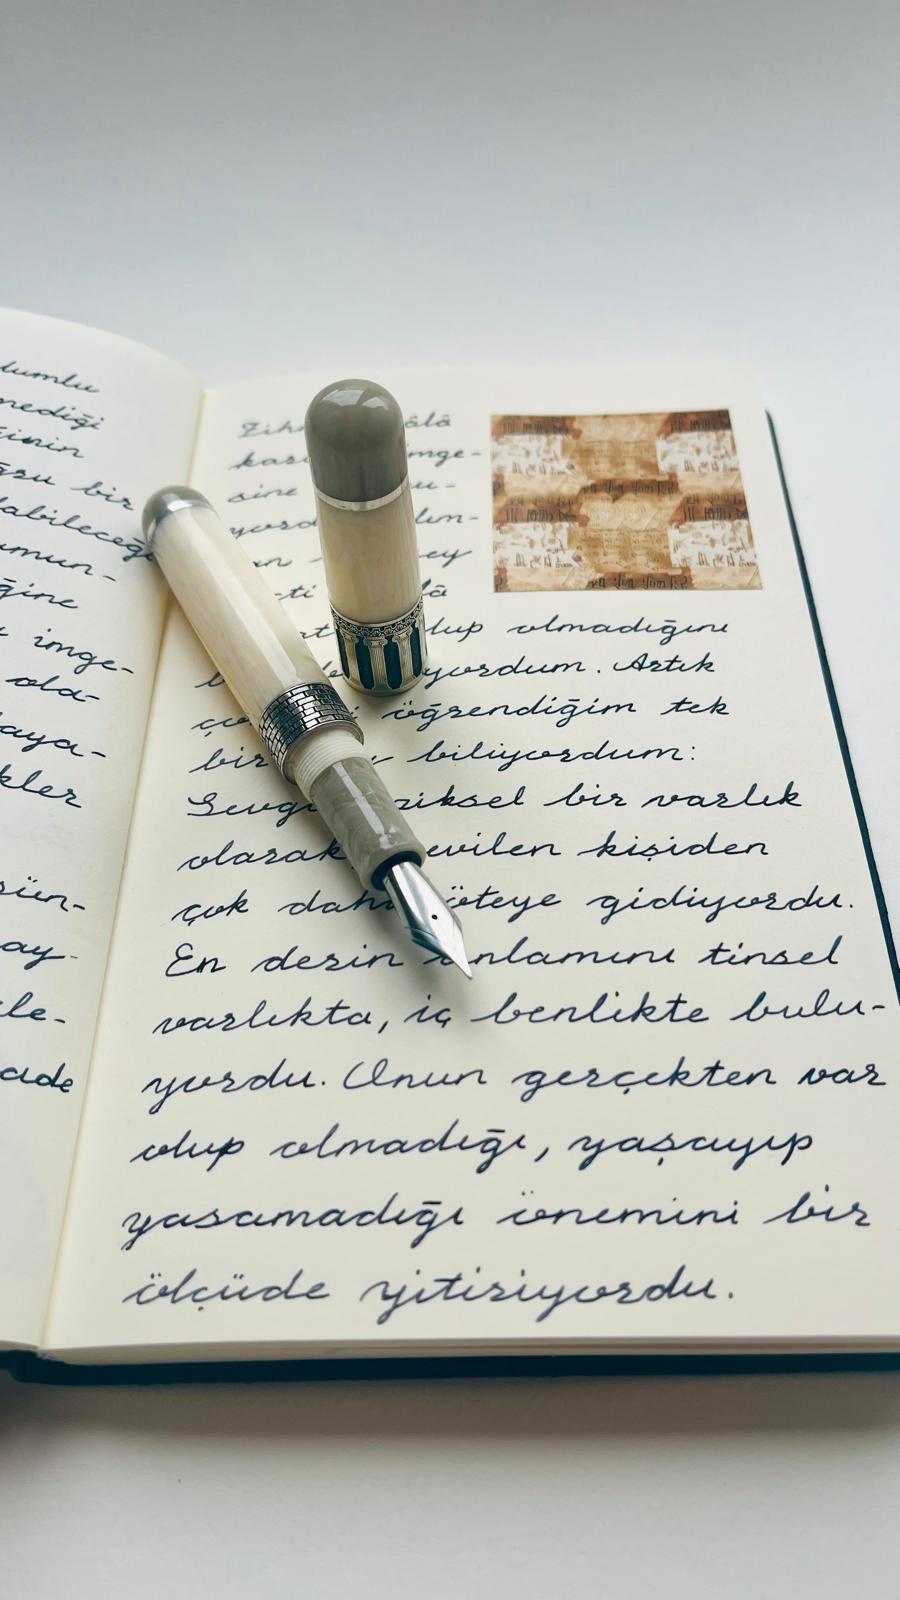 lumlu
mediği
ğinin
ğru bir
labileceği
umun-
ğine
imge-
ola-
aya-
kler
sün-
ay-
cle-
cade
Zih âlâ
kas imge-
sine u-
yord lım-
an ey
ti lâ
lup olmadığını
yordum. Artık
öğrendiğim tek
bir biliyordum:
Sevgi ziksel bir varlık
olarak evilen kişiden
çok daha öteye gidiyordu.
En derin anlamını tinsel
varlıkta, iç benlikte bulu-
yordu. Onun gerçekten var
olup olmadığı, yaşayıp
yaşamadığı önemini bir
ölçüde yitiriyordu.